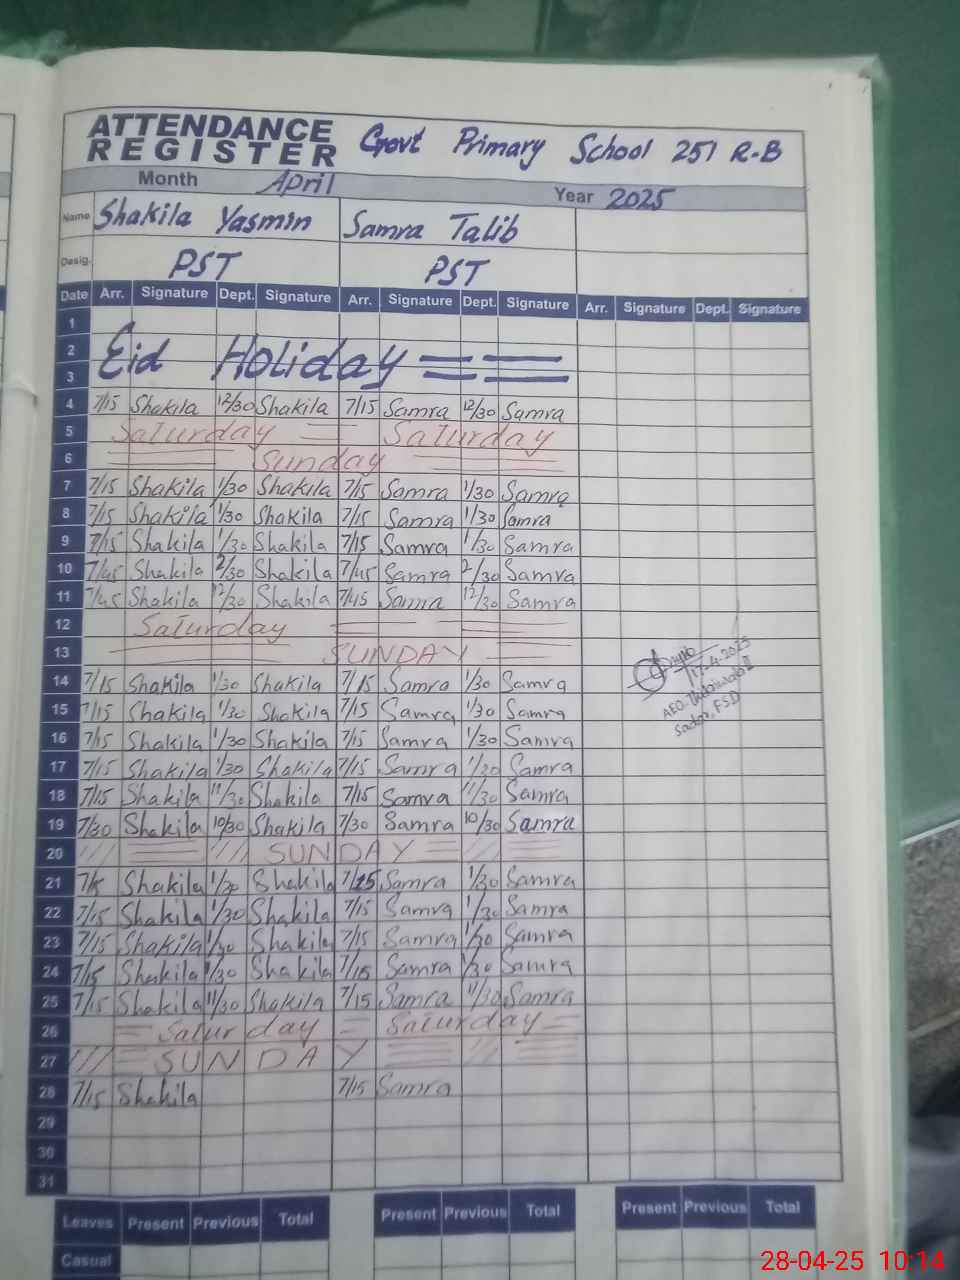 ATTENDANCE REGISTER Govt Primary School 251 R-B
Month April Year 2025
Name Shakila Yasmin Samra Talib
Desig. PST PST
Date Arr. Signature Dept. Signature Arr. Signature Dept. Signature Arr. Signature Dept. Signature
1
2 Eid Holiday
3
4 7/15 Shakila 12/30 Shakila 7/15 Samra 12/30 Samra
5 Saturday Saturday
6 Sunday
7 7/15 Shakila 1/30 Shakila 7/15 Samra 1/30 Samra
8 7/15 Shakila 1/30 Shakila 7/15 Samra 1/30 Samra
9 7/15 Shakila 1/30 Shakila 7/15 Samra 1/30 Samra
10 7/45 Shakila 2/30 Shakila 7/45 Samra 2/30 Samra
11 7/45 Shakila 12/30 Shakila 7/45 Samra 12/30 Samra
12 Saturday
13 SUNDAY
17-4-2025
14 7/15 Shakila 1/30 Shakila 7/15 Samra 1/30 Samra
AEO
15 7/15 Shakila 1/30 Shakila 7/15 Samra 1/30 Samra
Sadar, FSD
16 7/15 Shakila 1/30 Shakila 7/15 Samra 1/30 Samra
17 7/15 Shakila 1/30 Shakila 7/15 Samra 1/30 Samra
18 7/15 Shakila 11/30 Shakila 7/15 Samra 11/30 Samra
19 7/30 Shakila 10/30 Shakila 7/30 Samra 10/30 Samra
20 SUNDAY
21 Shakila 1/30 Shakila Samra 1/30 Samra
22 7/15 Shakila 1/30 Shakila 7/15 Samra 1/30 Samra
23 7/15 Shakila 1/30 Shakila 7/15 Samra 1/30 Samra
24 7/15 Shakila 1/30 Shakila 7/15 Samra 1/30 Samra
25 7/15 Shakila 11/30 Shakila 7/15 Samra 11/30 Samra
26 Saturday Saturday
27 SUNDAY
28 7/15 Shakila 7/15 Samra
29
30
31
Leaves Present Previous Total Present Previous Total Present Previous Total
Casual
28-04-25 10:14